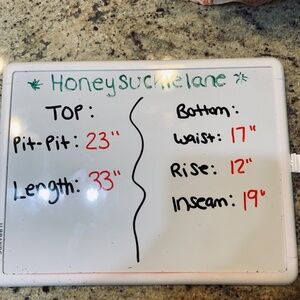 Honeysucklelane
TOP:
Pit-Pit: 23"
Length: 33"
Bottom:
Waist: 17"
Rise: 12"
Inseam: 19"